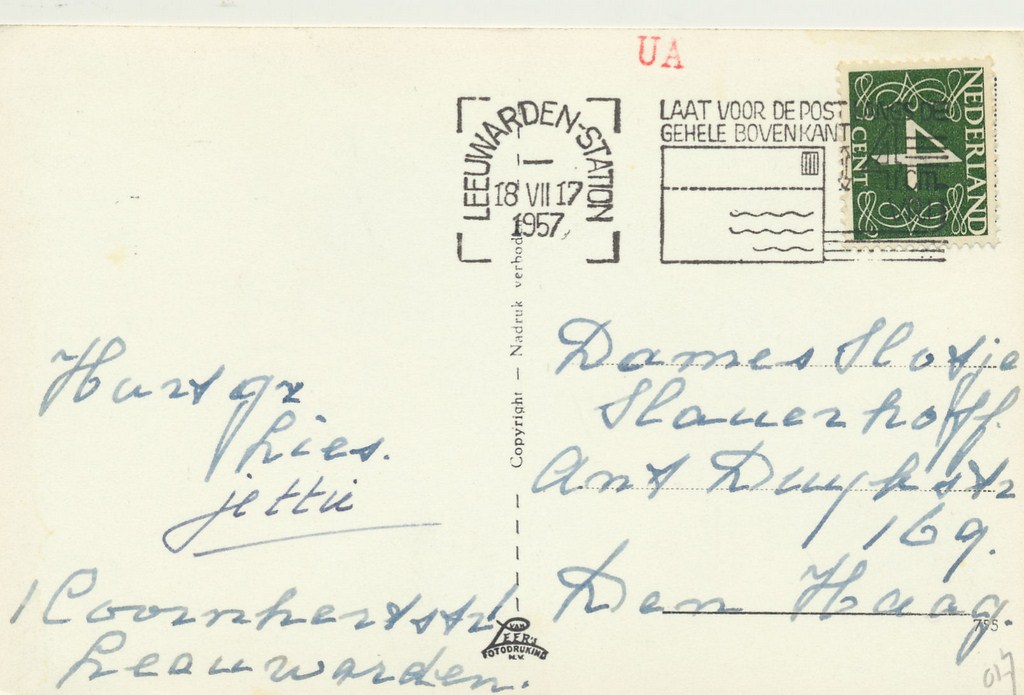 UA
LEEUWARDEN-STATION
18 VII 17
1957
LAAT VOOR DE POST LANGS DE
GEHELE BOVENKANT
NEDERLAND
4
CENT
Copyright — Nadruk verboden
Hart gr
Lies.
jettie
1 Coornhertstr
Leeuwarden.
Dames Slotje
Slauerhoff.
Ant Duyckstr
169.
Den Haag.
VAN
LEER'S
FOTODRUKIND
N.V.
755